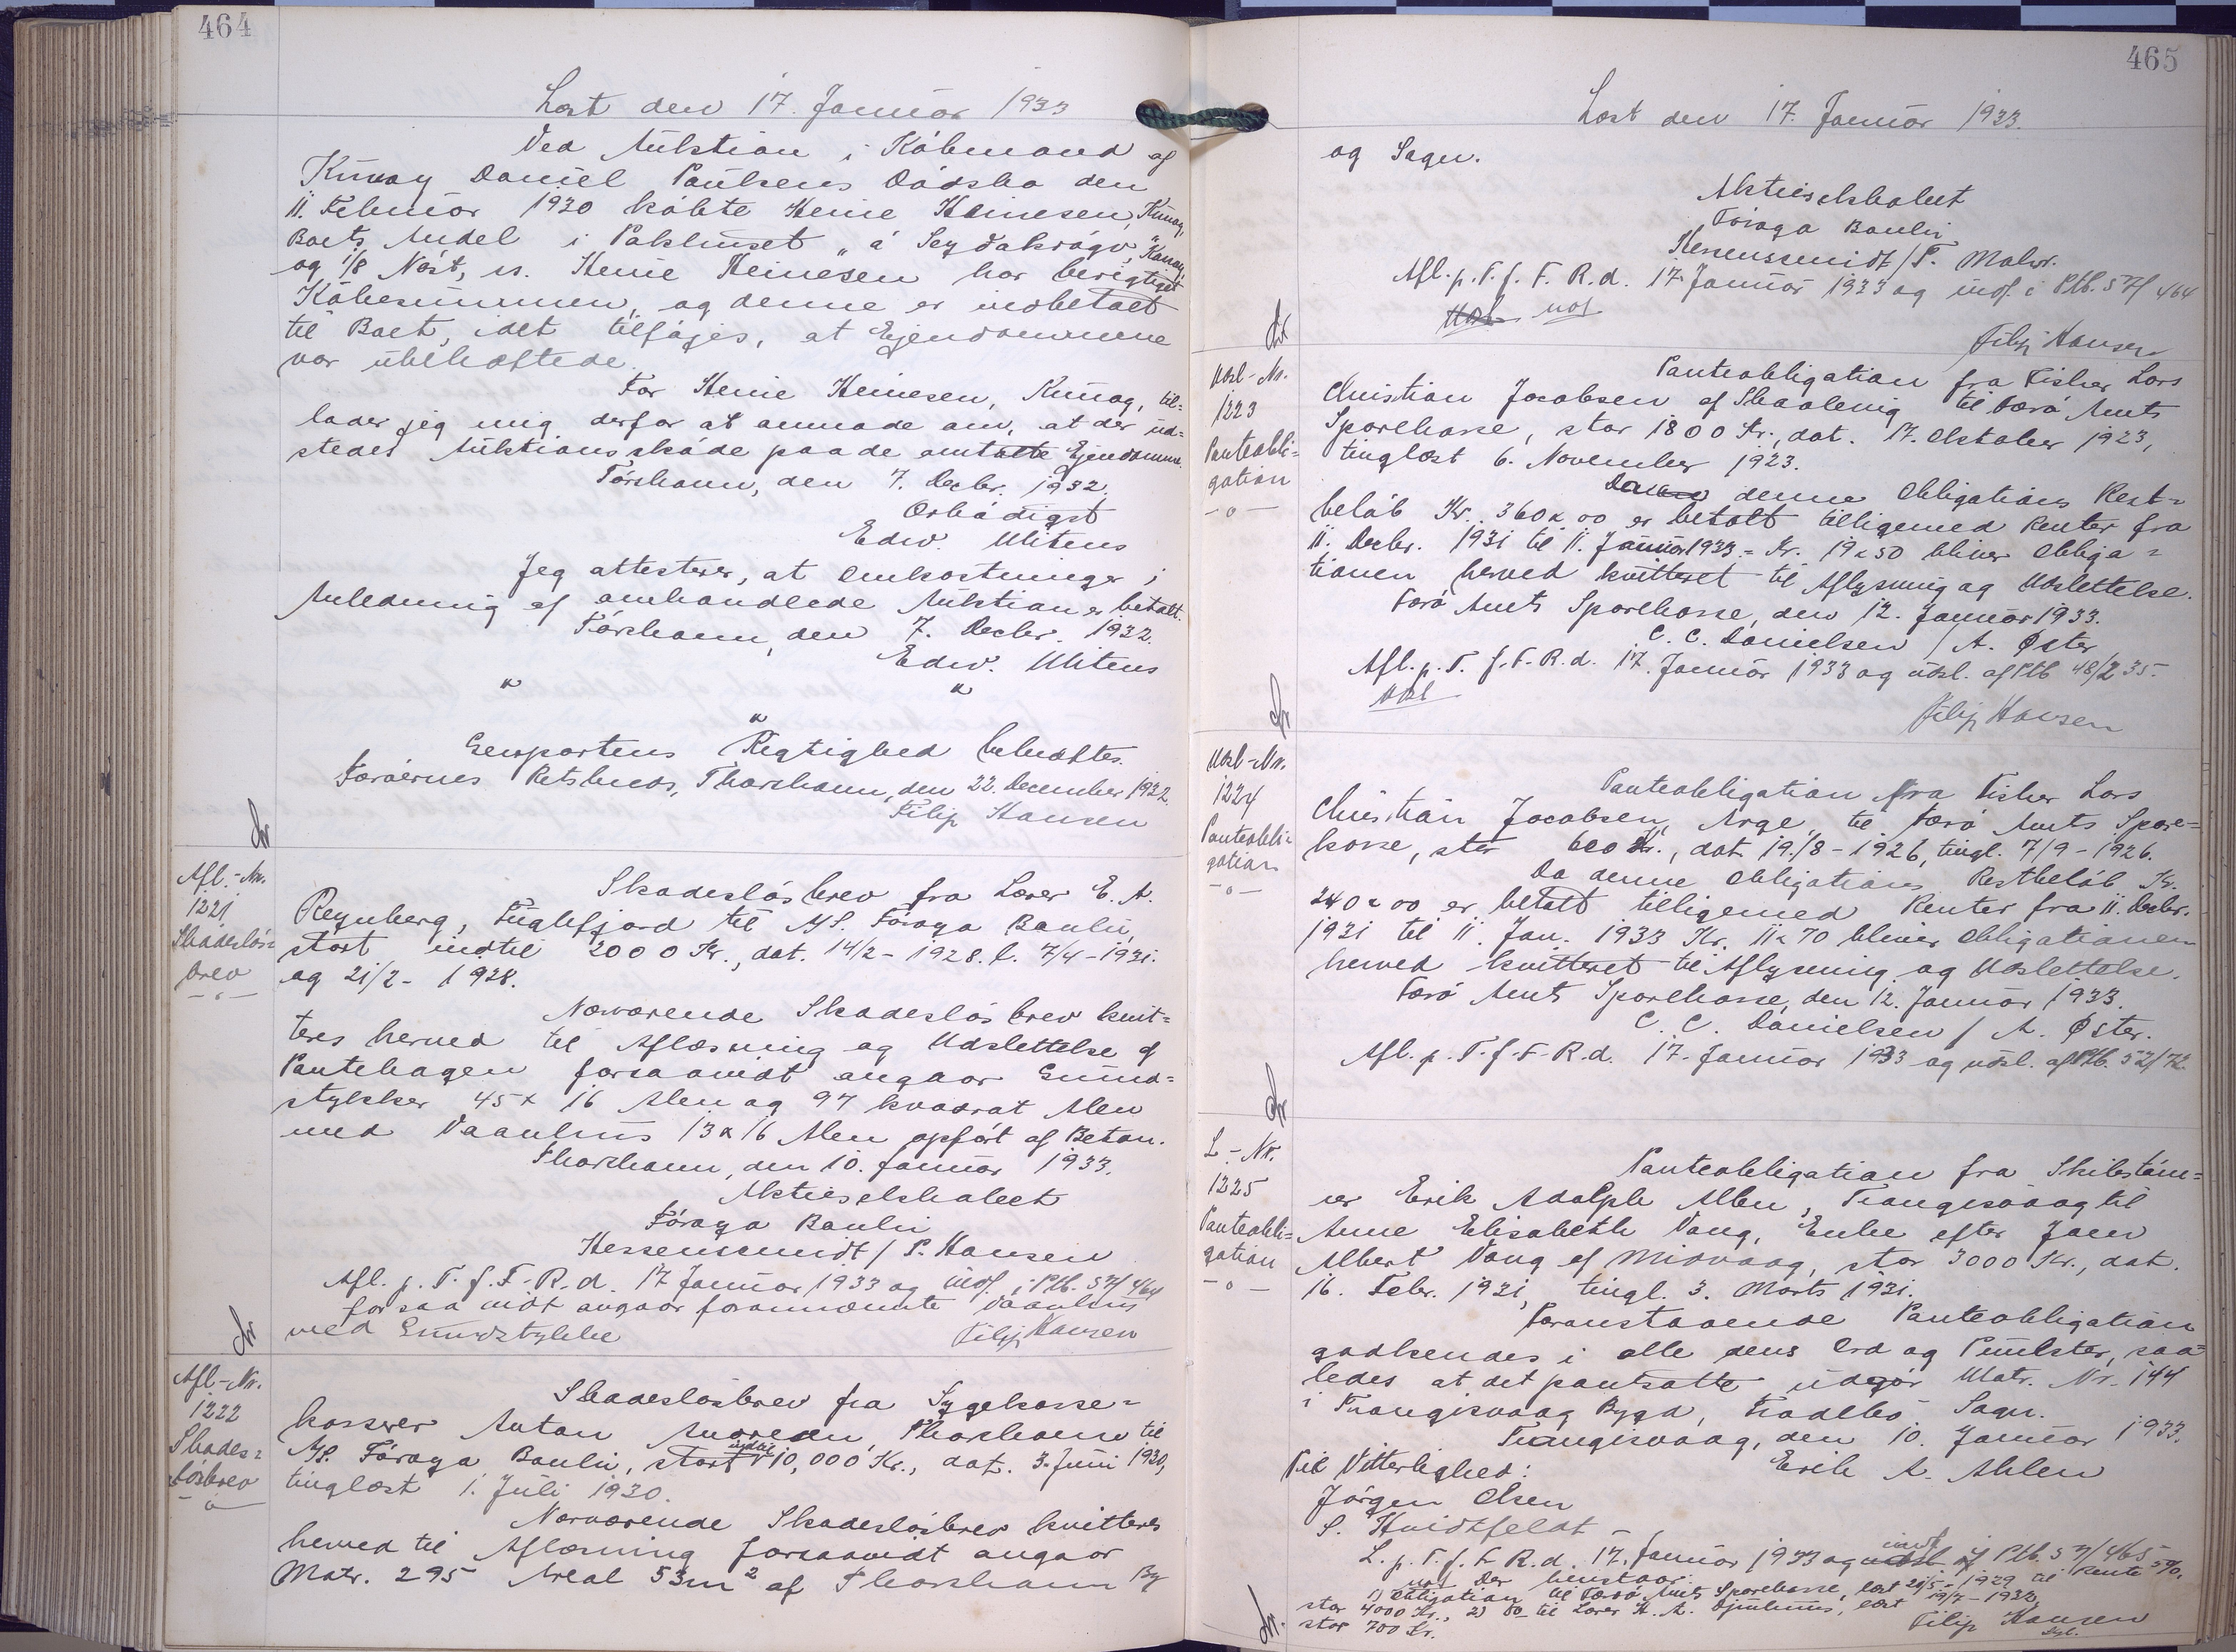 464
Læst den 17. Januar 1933
Ved Auktion i Købmand af
Kunoy Daniel Poulsens Dødsbo den
11. Februar 1930 købte Heine Heinesen, Kunoy,
Boets Andel i Pakhuset "á Seydakrógv", Kunoy,
og 1/8 Nøst, n. Heine Heinesen har berigtiget
Købesummen, og denne er indbetalt
til Boet, idet tilføjes, at Ejendommene
var ubehæftede.
For Heine Heinesen, Kunoy, til=
lader jeg mig derfor at anmode om, at der ud=
stedes Auktionsskøde paa de omtalte Ejendomme.
Tórshavn, den 7. Decbr. 1932.
Ærbødigst
Edw. Mitens
Jeg attesterer, at Omkostninger i
Anledning af omhandlede Auktion er betalt.
Tórshavn, den 7. Decbr. 1932.
Edw. Mitens
" "
"
Genpartens Rigtighed bekræftes.
Færøernes Retskreds, Thorshavn, den 22. December 1932.
Filip Hansen
Afl.-Nr.
1221
Skadesløs=
brev
-o-
Skadesløsbrev fra Lærer E. A.
Reynberg, Fuglefjord til A/S. Føroya Banki,
stort indtil 2000 Kr., dat. 14/2 - 1928. l. 7/4 - 1931.
og 21/2 - 1928.
Nærværende Skadesløsbrev kvit=
teres herved til Aflæsning og Udslettelse af
Pantebogen forsaavidt angaar Grund=
stykker 45 x 16 Alen og 97 kvadrat Alen
med Vaanhus 13 x 16 Alen opført af Beton.
Thorshavn, den 10. Januar 1933.
Aktieselskabet
Føroya Banki
Hessenscmidt / P. Hansen
Afl. p. T. f. F. R. d. 17 Januar 1933 og indf. i Ptb. 57/464
for saa vidt angaar forannævnte Vaanhus
med Grundstykke
Filip Hansen
Afl-Nr.
1222
Skades=
løsbrev
-o-
Skadesløsbrev fra Sygekasse=
kasserer Anton, Thorshavn til
A/S. Føroya Banki, stort indtil 10,000 Kr., dat. 3. Juni 1930,
tinglæst 1. Juli 1930.
Nærværende Skadesløsbrev kvitteres
herved til Aflæsning forsaavidt angaar
Matr. 295 Areal 53 m² af Thorshavn By
465
Læst den 17. Januar 1933.
og Sogn.
Aktieselskabet
Føroya Banki
Hessenscmidt / P.
Afl. p. T. f. F. R. d. 17. Januar 1933 og indf. i Ptb. 57/464
not
Filip Hansen
Udsl-Nr.
1223
Panteobli=
gation
-o-
Panteobligation fra Fisker Lars
Christian Jacobsen af Skaalevig til Færø Amts
Sparekasse, stor 1800 Kr., dat. 17. Oktober 1923,
tinglæst 6. November 1923.
denne Obligations Rest=
beløb Kr. 360 x 00 er betalt tilligemed Renter fra
11. Decbr. 1931 til 11. Januar 1933 = Kr. 19 x 50 bliver Obliga=
tionen herved kvitteret til Aflysning og Udslettelse.
Færø Amts Sparekasse, den 12. Januar 1933.
C. C. Danielsen / A. Øster
Afl. p. T. f. F. R. d. 17. Januar 1933 og udsl. af Ptb 48/235.
Filip Hansen
Udsl-Nr.
1224
Panteobli=
gation
-o-
Panteobligation fra Fisker Lars
Christian Jacobsen, Arge, til Færø Amts Spare=
kasse, stor 600 Kr., dat. 19./8 - 1926, tingl. 7/9 - 1926.
Da denne Obligations Restbeløb Kr.
240 x 00 er betalt tilligemed Renter fra 11. Decbr.
1931 til 11. Jan. 1933 Kr. 11 x 70 bliver Obligationen
herved kvitteret til Aflysning og Udslettelse.
Færø Amts Sparekasse, den 12. Januar 1933.
C. C. Danielsen / A. Øster.
Afl. p. T. f. F. R. d. 17. Januar 1933 og udsl. af Ptb. 52/72.
L.-Nr.
1225
Panteobli=
gation
-o-
Panteobligation fra Skibstøm=
rer Erik Adolph Ahlen, Trangisvaag til
Anne Elisabeth Vang, Enke efter Jens
Albert Vang af Midvaag, stor 3000 Kr., dat.
16. Febr. 1931, tingl. 3. Marts 1931.
Foranstaaende Panteobligation
godkendes i alle dens Ord og Punkter, saa=
ledes at det pantsatte udgør Matr. Nr. 144
i Trangisvaag Bygd, Frodebø Sogn.
Trangisvaag, den 10. Januar 1933.
Til Vitterlighed: Erik A. Ahlen
Jørgen Olsen
S. Hvidtfeldt -
L. p. T. f. F. R. d. 17. Januar 1933 og indf. i Ptb. 57/465
not Der henstaar:
1) Obligation til Færø Amts Sparekasse, læst 21/5 - 1929 til Rente 5%,
stor 4000 Kr., 2) Do til Lærer H. A. Djurhuus, læst 19/7 - 1932,
stor 700 Kr.
Filip Hansen